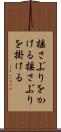 揺さぶりをか
ける揺さぶり
を掛ける